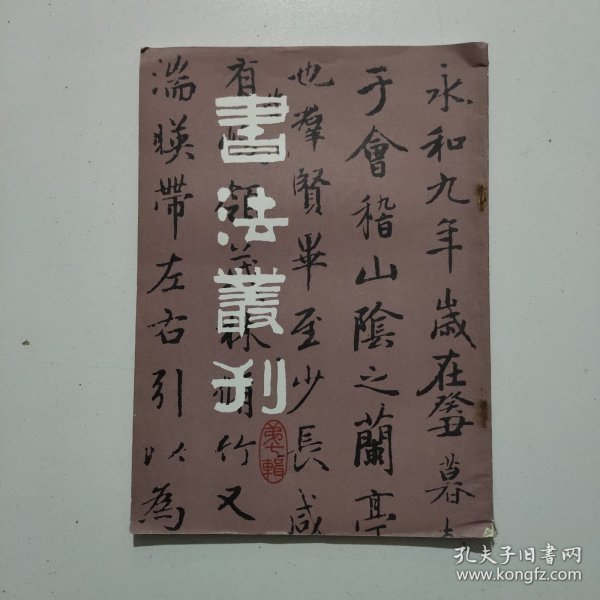 永和九年歲在癸丑暮
于會稽山陰之蘭亭
也羣賢畢至少長咸
有領茂林脩竹又
湍暎帶左右引以為
書法叢刊
第七輯
孔夫子旧书网
www.kongfz.com